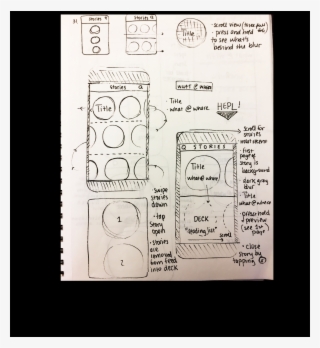 Stories
Stories
Title
• scroll view
• press and hold
to see what's
behind the blur
Stories
Title
what @ where
• Title
• what @ where
HEPL!
STORIES
Title
what @ where
DECK
scroll
• scroll for
stories
• first
page of
story is
background
• dark gray
blur
• Title
what @ where
preview
(see 1st
page)
• close
story by
tapping
Swipe
stories
down
• tap
story
again
• stories
are
removed
from feed
into deck
1
2